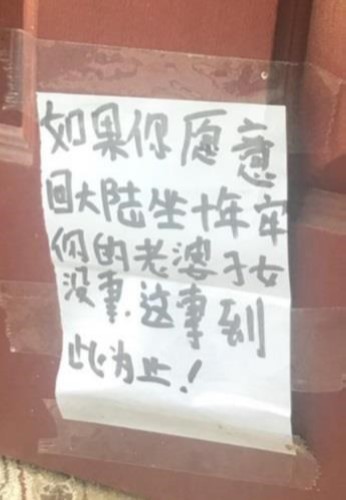 如果你愿意
回大陆坐十年牢
你的老婆子女
没事.这事到
此为止！